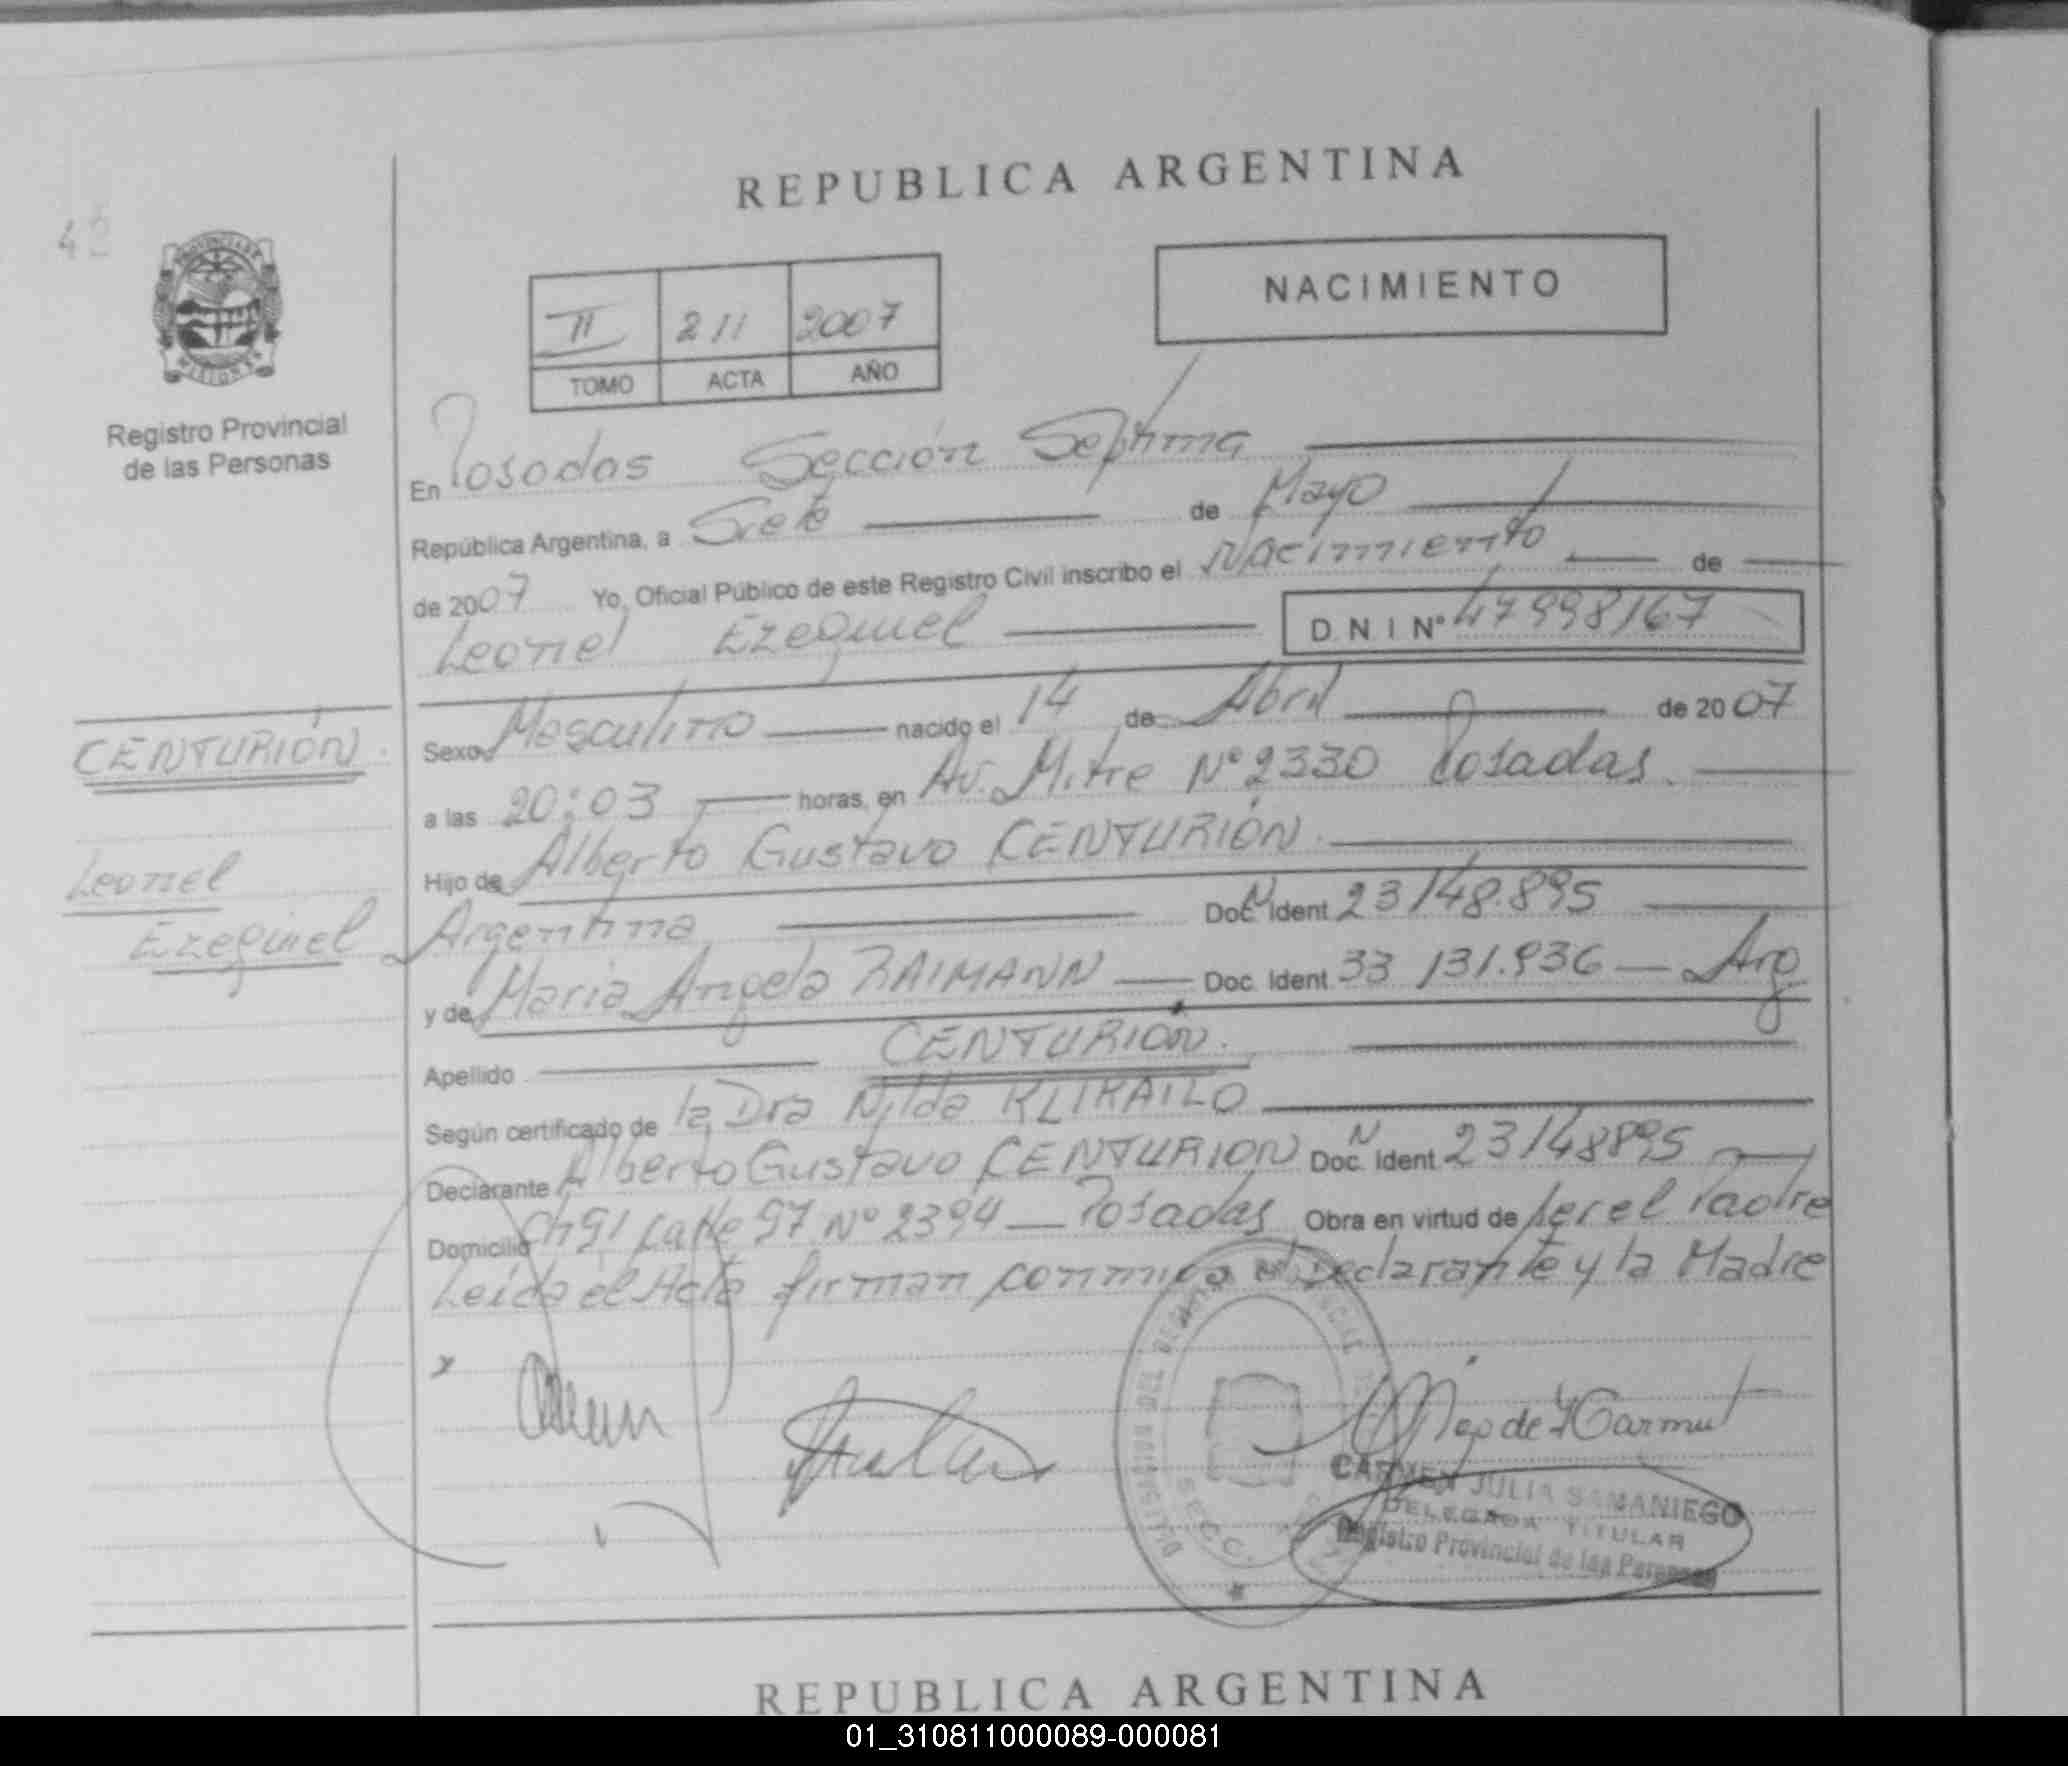 REPUBLICA ARGENTINA
42
NACIMIENTO
II 211 2007
TOMO ACTA AÑO
Registro Provincial
de las Personas
En Posadas Sección Septima
República Argentina, a Siete de Mayo
de 2007 Yo, Oficial Público de este Registro Civil inscribo el Nacimiento de
Leonel Ezequiel D N I Nº 47998167
CENTURIÓN
Leonel
Ezequiel
Sexo Masculino nacido el 14 de Abril de 2007
a las 20:03 horas, en Av. Mitre Nº 2330 Posadas.
Hijo de Alberto Gustavo CENTURIÓN
Argentina Doc. Ident N 23148.895
y de Maria Angela RAIMANN Doc. Ident 33 131.936 Arg
Apellido CENTURIÓN.
Según certificado de la Dra Nilda
Declarante Alberto Gustavo CENTURION Doc. Ident N 23148895
Domicilio Ch 91 Calle 97 Nº 2394 Posadas Obra en virtud de ser el Padre
Leida el Acta firman conmigo el Declarante y la Madre
x
SECC.
CARMEN JULIA SAMANIEGO
DELEGADA TITULAR
Registro Provincial de las Personas
REPUBLICA ARGENTINA
01_310811000089-000081